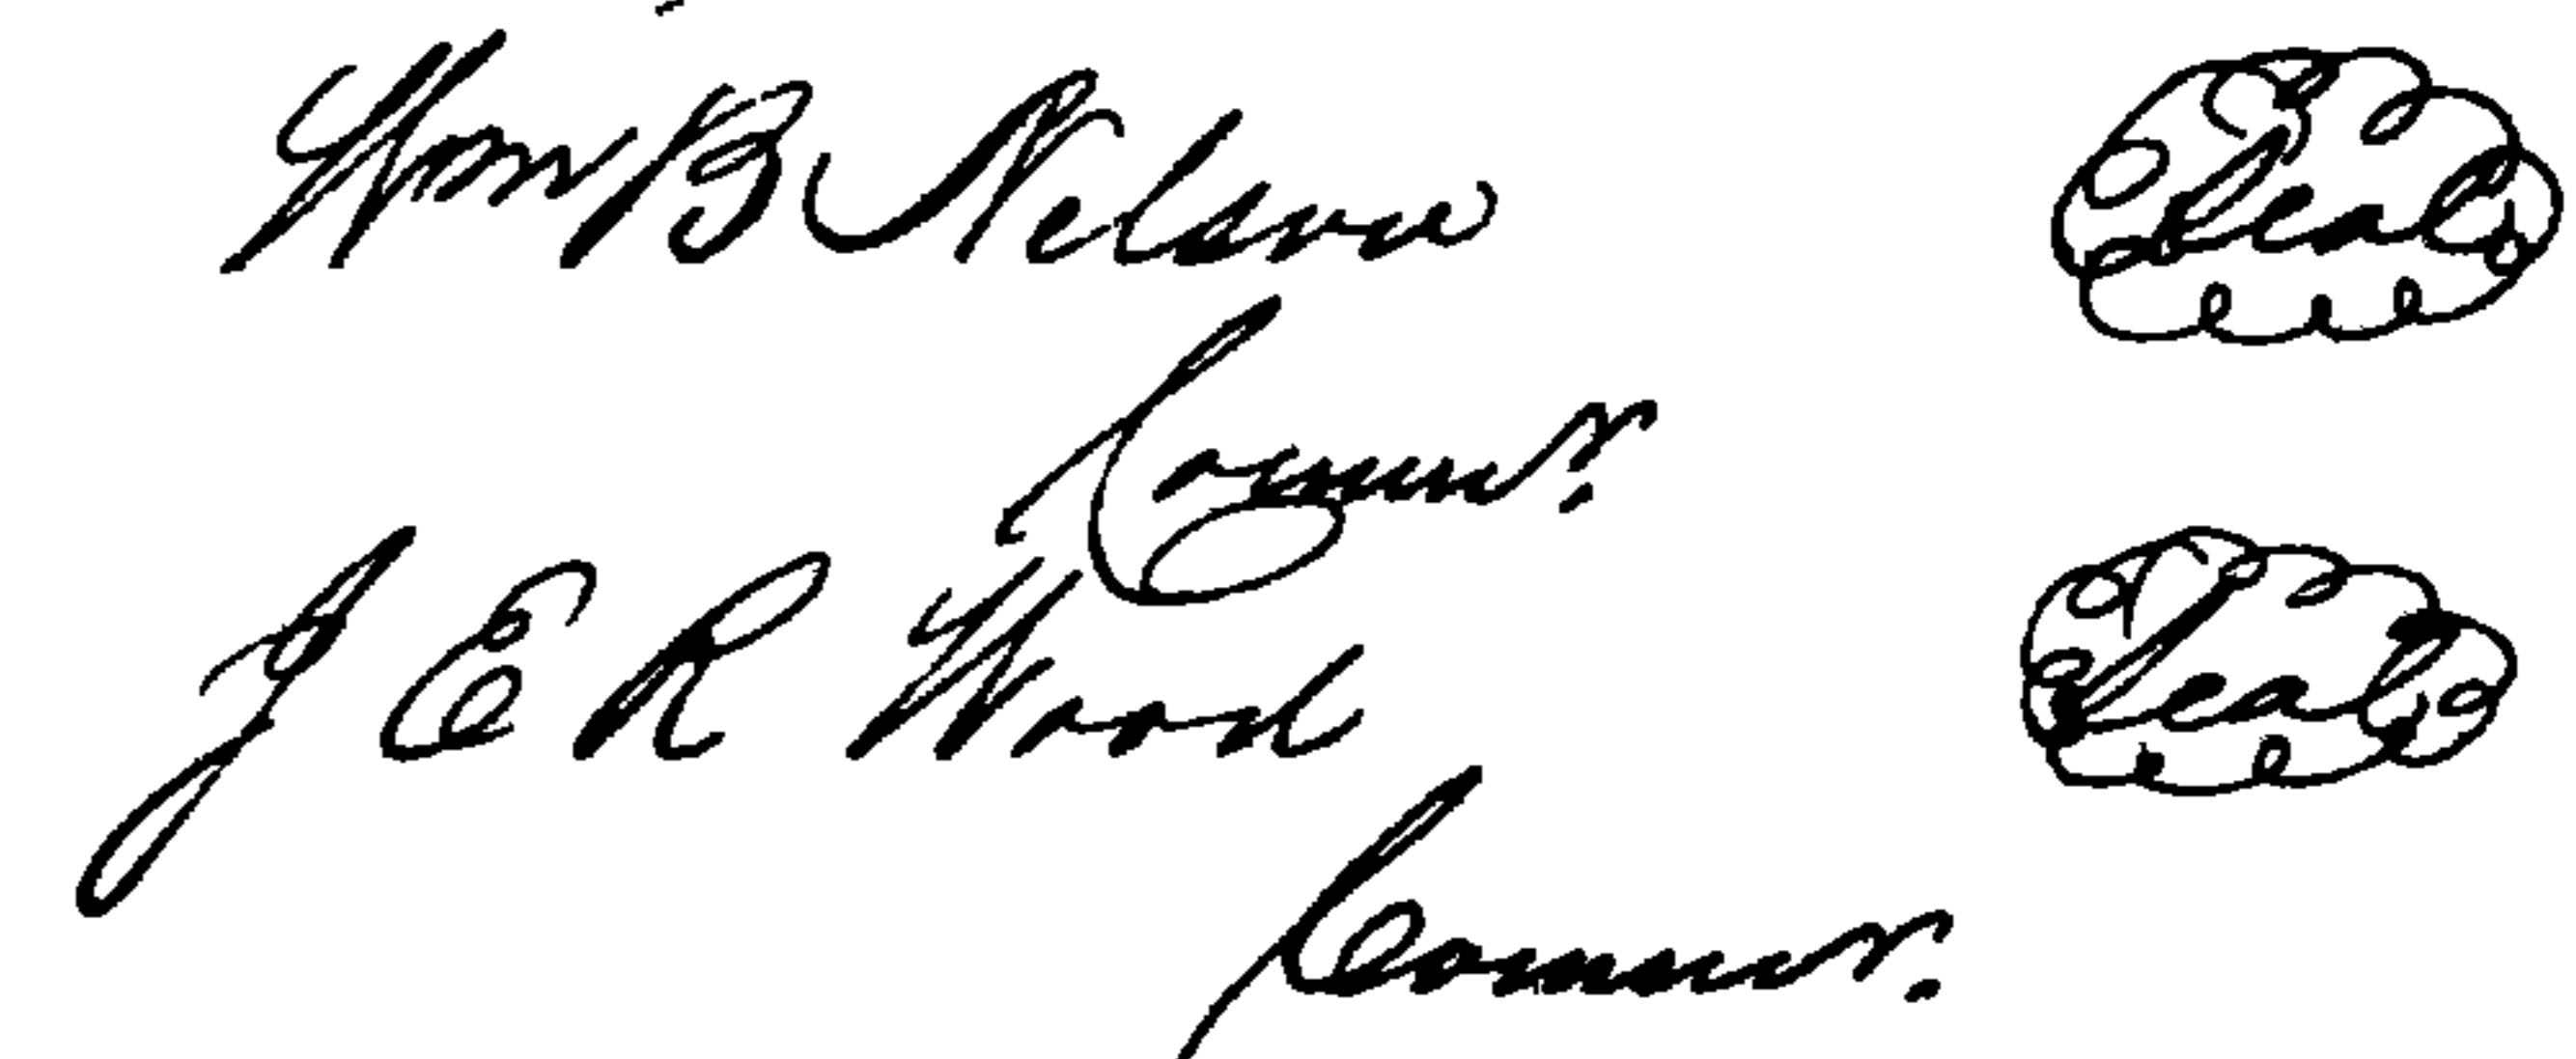 Wm B Nelson Seal
Commr.
J E R Wood Seal
Commr.